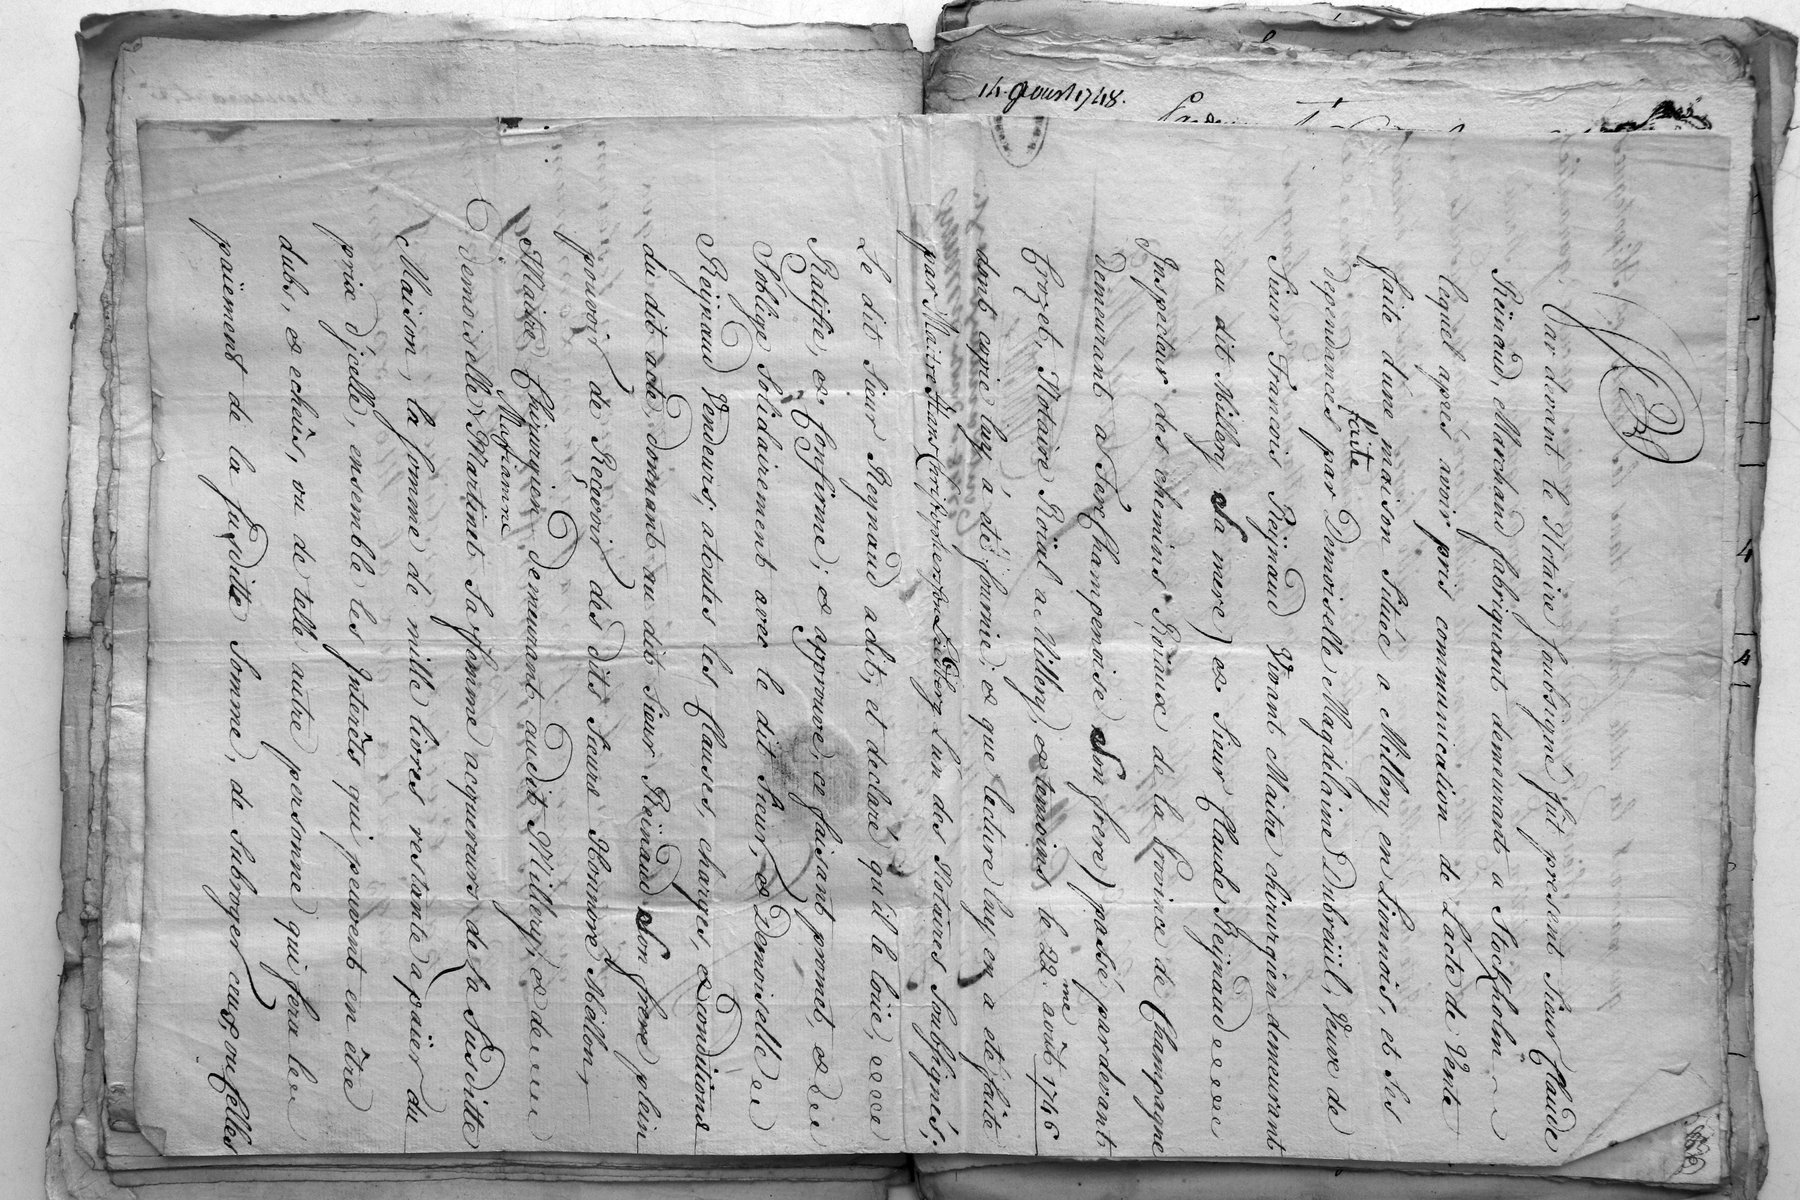 14. Aoust 1748.
Par devant le Notaire soubsigné fût present Sieur Claude
Reinaud, Marchand fabriquant demeurant a Stockholm
lequel aprés avoir pris communication de L'acte de Vente
faite d'une maison Située a Millery en Lionnois, et Ses
dependances faite par Demoiselle Magdelaine Dubreüil, Veuve de
Sieur Francois Reÿnaud Vivant Maitre chirurgien demeurant
au dit Millery Sa mere) & Sieur Claude Reijnaud
Inspecteur des chemins Roiaux de la Province de Champagne
Demeurant a Ferchampenoise Son frere) passé pardevant
Crozet, Notaire Roial a Millery & temoins le 22.me août 1746
dont copie luy a été fournie; & que lecture luy en a eté faite
par Maitre Hans Cristopherson Ledberg L'un des Notaires Soubsignés;
Le dit Sieur Reynaud a dit, et declaré qu'il le loüe,
Ratifie, & Confirme; & approuve, ce faisant promet, &
S'oblige Solidairement avec le dit Sieur, & Demoiselle
Reijnaud Vendeurs; a toutes les Clauses, charges, & Conditions
du dit acte, donnant au dit Sieur Reïnaud Son frere plein
pouvoir de Reçevoir des dits Sieurs Honnoré Mellon,
Maitre Chirurgien demeurant audit Millery, & de
demoiselle Marianne Martinet Sa femme acquereurs de la Susditte
Maison, la Somme de mille livres restante a paÿer du
prix d'jcelle, ensemble les Interêts qui peuvent en être
dubs, & echeûs, ou de telle autre personne qui fera le
païement de la Susditte Somme, de Subroger ceux, ou Celles